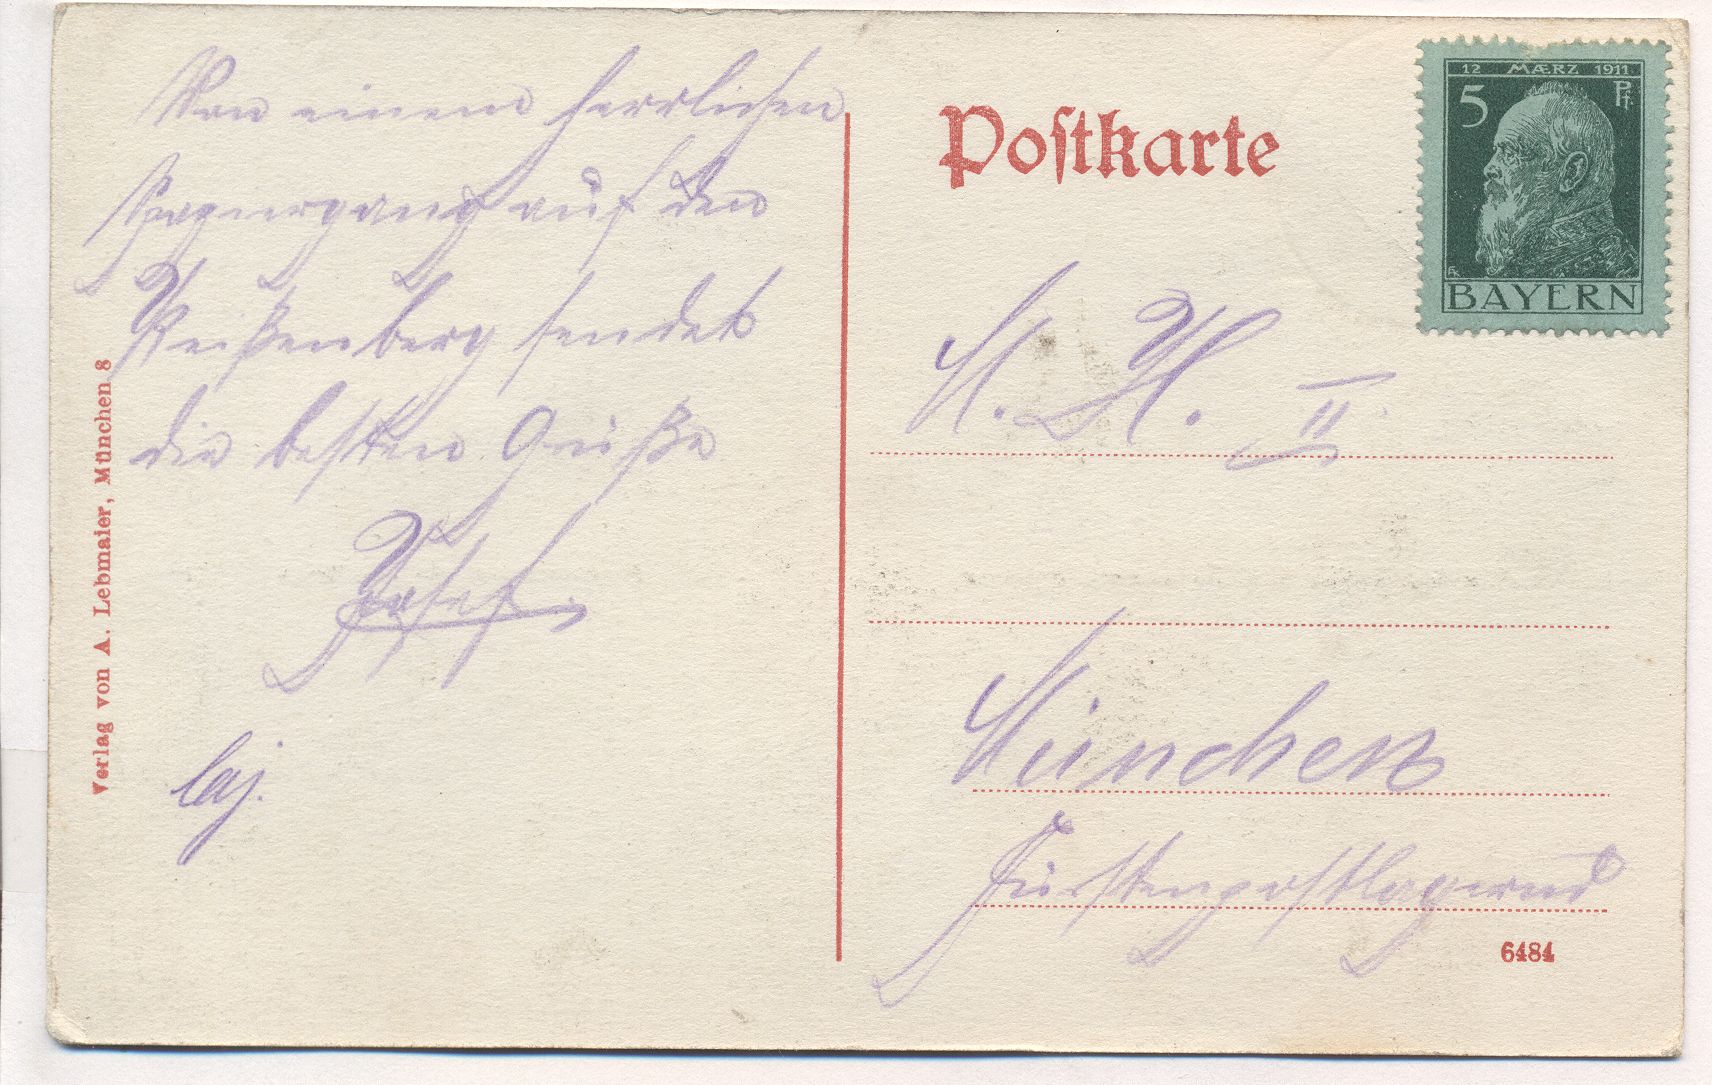 Von einem herrlichen
Spaziergang auf den
Peißenberg sendet
die besten Grüße
Josef.
Postkarte
12 MÆRZ 1911
5 Pf.
BAYERN
II
München
postlagernd
Verlag von A. Lebmaier, München 8
6484